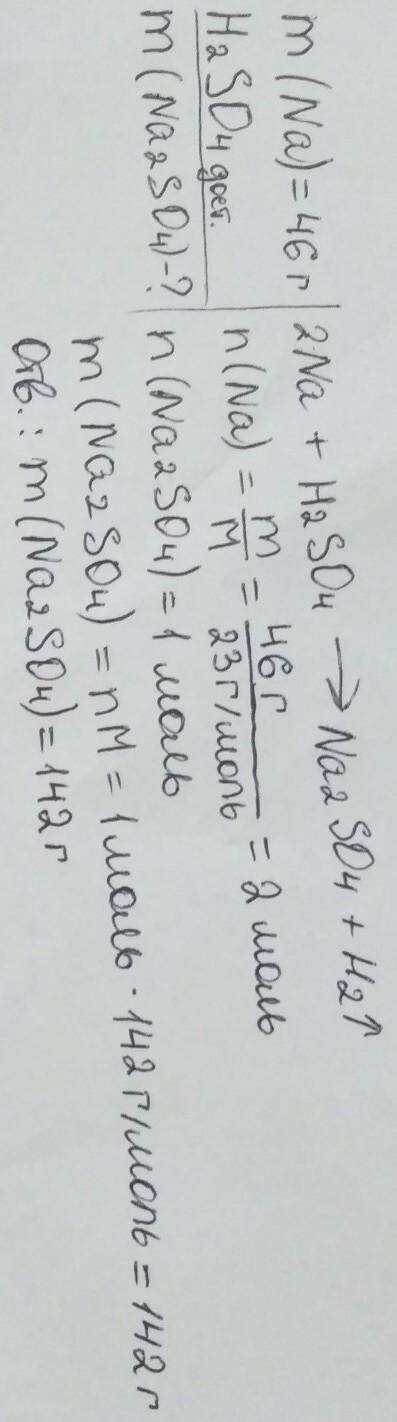 m (Na) = 46 г
H₂SO₄ дост.
m (Na₂SO₄) - ?
2Na + H₂SO₄ → Na₂SO₄ + H₂↑
n (Na) = m/M = 46 г / 23 г/моль = 2 моль
n (Na₂SO₄) = 1 моль
m (Na₂SO₄) = nM = 1 моль · 142 г/моль = 142 г
Отв.: m (Na₂SO₄) = 142 г